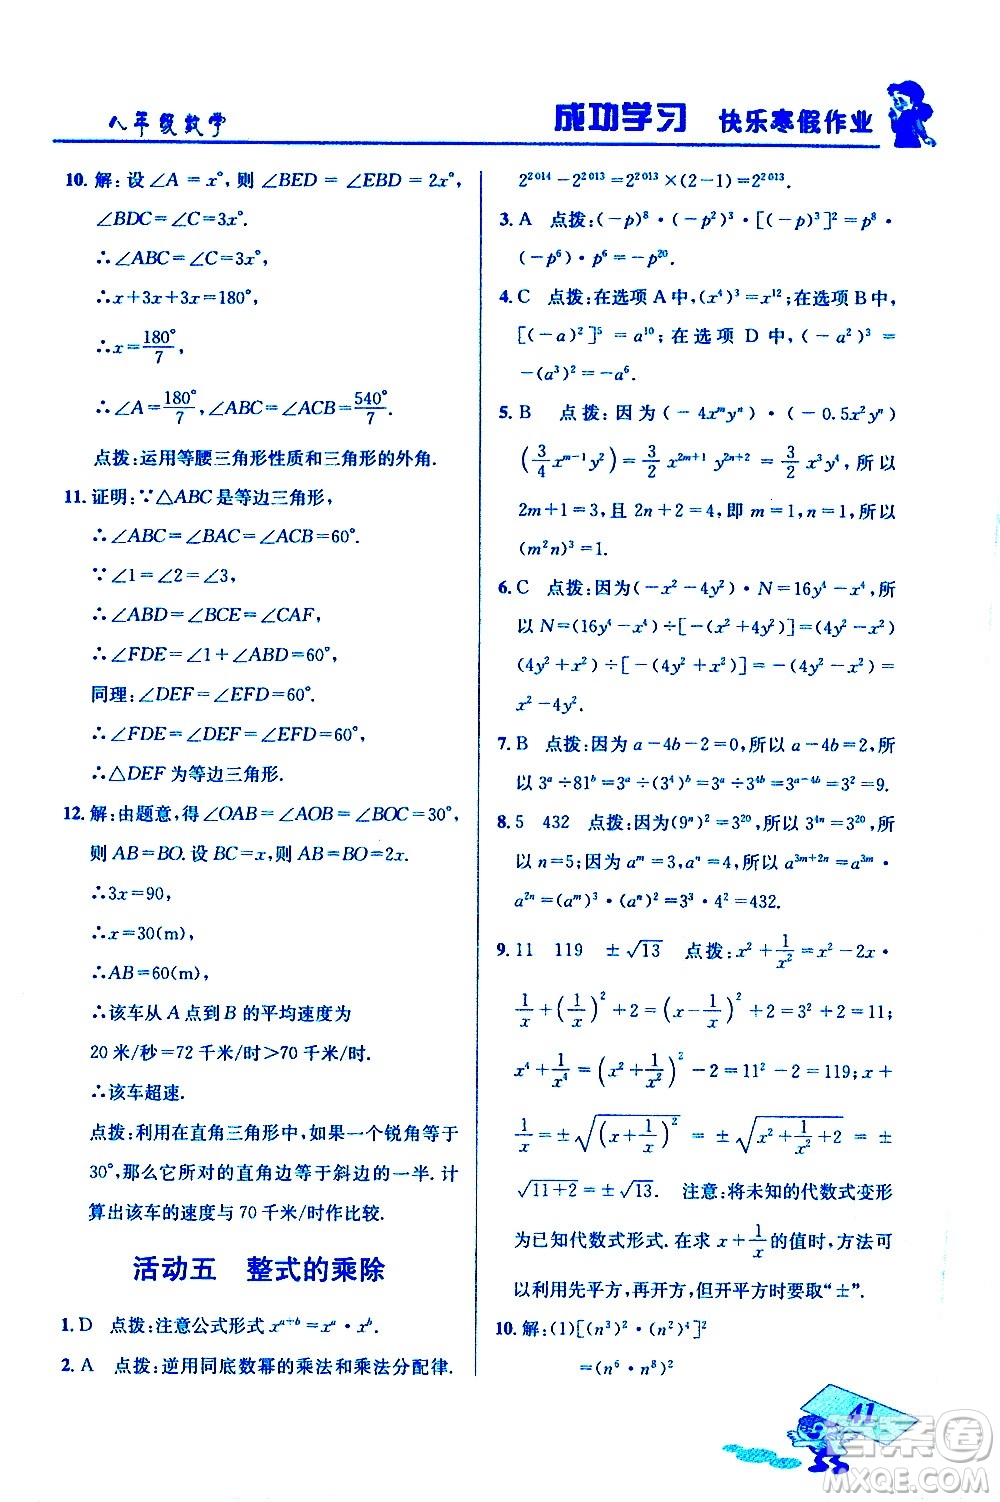 八年级数学
成功学习 快乐寒假作业
10. 解:设∠A=x°,则∠BED=∠EBD=2x°,
∠BDC=∠C=3x°.
∴∠ABC=∠C=3x°,
∴x+3x+3x=180°,
∴x=180°/7,
∴∠A=180°/7,∠ABC=∠ACB=540°/7.
点拨:运用等腰三角形性质和三角形的外角.
11. 证明:∵△ABC是等边三角形,
∴∠ABC=∠BCA=∠CAB=60°.
∵∠1=∠2=∠3,
∴∠ABD=∠BCE=∠CAF,
∴∠FDE=∠1+∠ABD=60°,
同理:∠DEF=∠EFD=60°.
∴∠FDE=∠DEF=∠EFD=60°,
∴△DEF为等边三角形.
12. 解:由题意,得∠OAB=∠AOB=∠BOC=30°,
则AB=BO.设BC=x,则AB=BO=2x.
∴3x=90,
∴x=30(m),
∴AB=60(m),
∴该车从A点到B的平均速度为
20米/秒=72千米/时>70千米/时.
∴该车超速.
点拨:利用在直角三角形中,如果一个锐角等于
30°,那么它所对的直角边等于斜边的一半.计
算出该车的速度与70千米/时作比较.
活动五 整式的乘除
1. D 点拨:注意公式形式x^{a+b}=x^a·x^b.
2. A 点拨:逆用同底数幂的乘法和乘法分配律.
2^{2014}-2^{2013}=2^{2013}×(2-1)=2^{2013}.
3. A 点拨:(-p)^8·(-p^2)^3·[(-p)^3]^2=p^8·
(-p^6)·p^6=-p^{20}.
4. C 点拨:在选项A中,(x^4)^3=x^{12};在选项B中,
[(-a)^2]^5=a^{10};在选项D中,(-a^2)^3=
-(a^3)^2=-a^6.
5. B 点拨:因为(-4x^m y^n)·(-0.5x^2 y^n)
(3/4 x^{m-1}y^2)=3/2 x^{2m+1}y^{2n+2}=3/2 x^3y^4,所以
2m+1=3,且2n+2=4,即m=1,n=1,所以
(m^2n)^3=1.
6. C 点拨:因为(-x^2-4y^2)·N=16y^4-x^4,所
以N=(16y^4-x^4)÷[-(x^2+4y^2)]=(4y^2-x^2)
(4y^2+x^2)÷[-(x^2+4y^2)]=-(4y^2-x^2)=
x^2-4y^2.
7. B 点拨:因为a-4b-2=0,所以a-4b=2,所
以3^a÷81^b=3^a÷(3^4)^b=3^a÷3^{4b}=3^{a-4b}=3^2=9.
8. 5 432 点拨:因为(9^n)^2=3^{20},所以3^{4n}=3^{20},所
以n=5;因为a^m=3,a^n=4,所以a^{3m+2n}=a^{3m}·
a^{2n}=(a^m)^3·(a^n)^2=3^3·4^2=432.
9. 11 119 ±√13 点拨:x^2+1/x^2=x^2-2x·
1/x+(1/x)^2+2=(x-1/x)^2+2=3^2+2=11;
x^4+1/x^4=(x^2+1/x^2)^2-2=11^2-2=119;x+
1/x=±√((x+1/x)^2)=±√(x^2+1/x^2+2)=±
√(11+2)=±√13. 注意:将未知的代数式变形
为已知代数式形式.求x+1/x的值时,方法可
以利用先平方,再开方,但开平方时要取“±”.
10. 解:(1)[(n^3)^2·(n^2)^4]^2
=(n^6·n^8)^2
41
答案圈
MXQE.COM